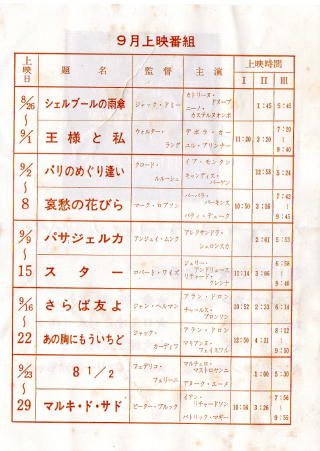 9月上映番組
上映日 題名 監督 主演 上映時間
I II III
8/26 シェルブールの雨傘 ジャック・ドミー カトリーヌ・ドヌーブ ニーノ・カステルヌオボ 1:45 5:45
〜
9/1 王様と私 ウォルター・ラング デボラ・カー ユル・ブリンナー 11:20 3:20 7:20〜9:40
9/2 パリのめぐり逢い クロード・ルルーシュ イブ・モンタン キャンディス・バーゲン 12:58 5:24
〜
8 哀愁の花びら マーク・ロブソン バーバラ・パーキンス パティ・デューク 10:50 3:26 7:42〜9:45
9/9 パサジェルカ アンジェイ・ムンク アレクサンドラ・シュロンスカ 2:01 5:53
〜
15 スター ロバート・ワイズ ジュリー・アンドリュース リチャード・クレンナ 11:14 3:06 6:58〜9:40
9/16 さらば友よ ジャン・ヘルマン アラン・ドロン チャールス・ブロンソン 10:52 2:33 6:14
〜
22 あの胸にもういちど ジャック・カーディフ アラン・ドロン マリアンヌ・フェイスフル 12:50 4:31 8:12〜9:50
9/23 8 1/2 フェデリコ・フェリーニ マルチェロ・マストロヤンニ アヌーク・エーメ 1:00 5:30
〜
29 マルキ・ド・サド ピーター・ブルック イアン・リチャードソン パトリック・マギー 10:56 3:26 7:56〜9:55